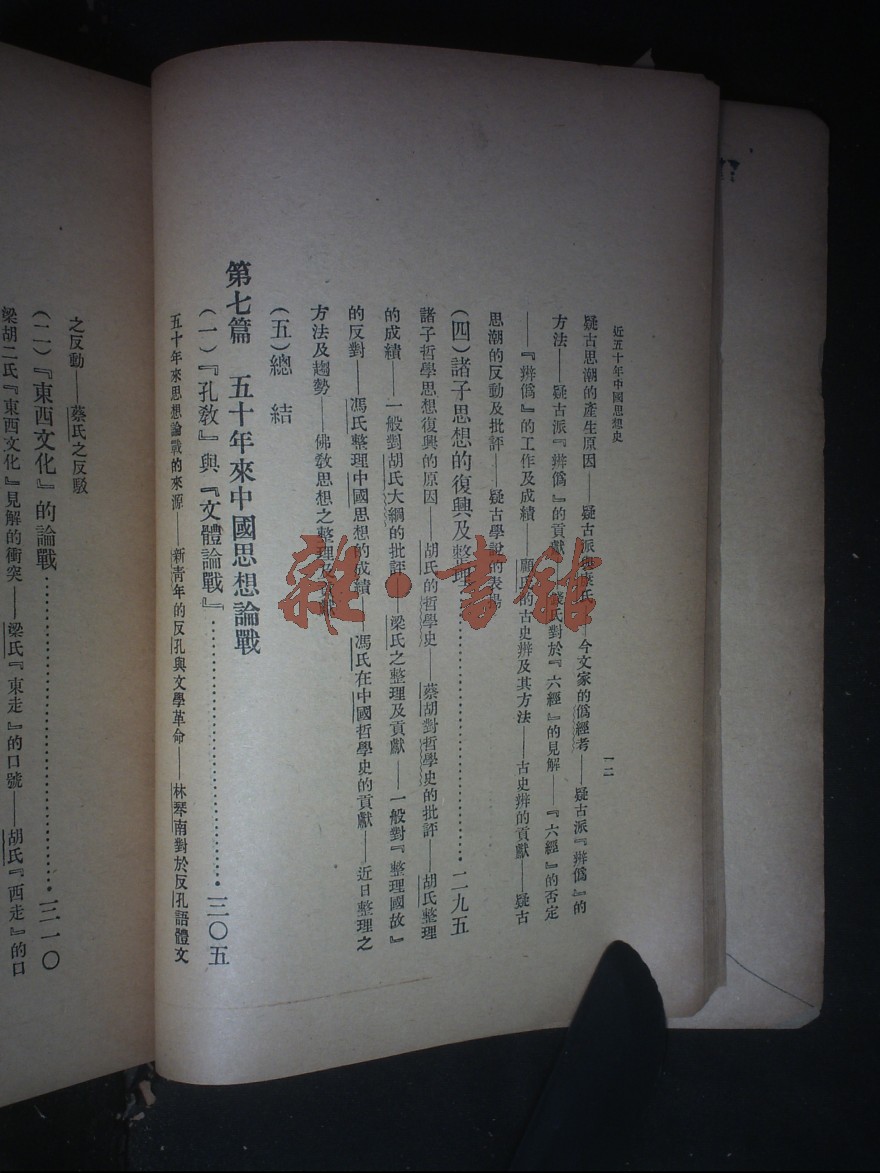 近五十年中國思想史
一二
疑古思潮的產生原因——疑古派與康氏——今文家的僞經考——疑古派『辨僞』的
方法——疑古派『辨僞』的貢獻——錢氏對於『六經』的見解——『六經』的否定
——『辨僞』的工作及成績——顧氏的古史辨及其方法——古史辨的貢獻——疑古
思潮的反動及批評——疑古學說的表揚
(四)諸子思想的復興及整理 二九五
諸子哲學思想復興的原因——胡氏的哲學史——蔡胡對哲學史的批評——胡氏整理
的成績——一般對胡氏大綱的批評——梁氏之整理及貢獻——一般對『整理國故』
的反對——馮氏整理中國思想的成績——馮氏在中國哲學史的貢獻——近日整理之
方法及趨勢——佛敎思想之整理及
(五)總結
第七篇 五十年來中國思想論戰
(一)『孔敎』與『文體論戰』 三〇五
五十年來思想論戰的來源——新靑年的反孔與文學革命——林琴南對於反孔語體文
之反動——蔡氏之反駁
(二)『東西文化』的論戰 三一〇
梁胡二氏『東西文化』見解的衝突——梁氏『東走』的口號——胡氏『西走』的口
雜·書鋪